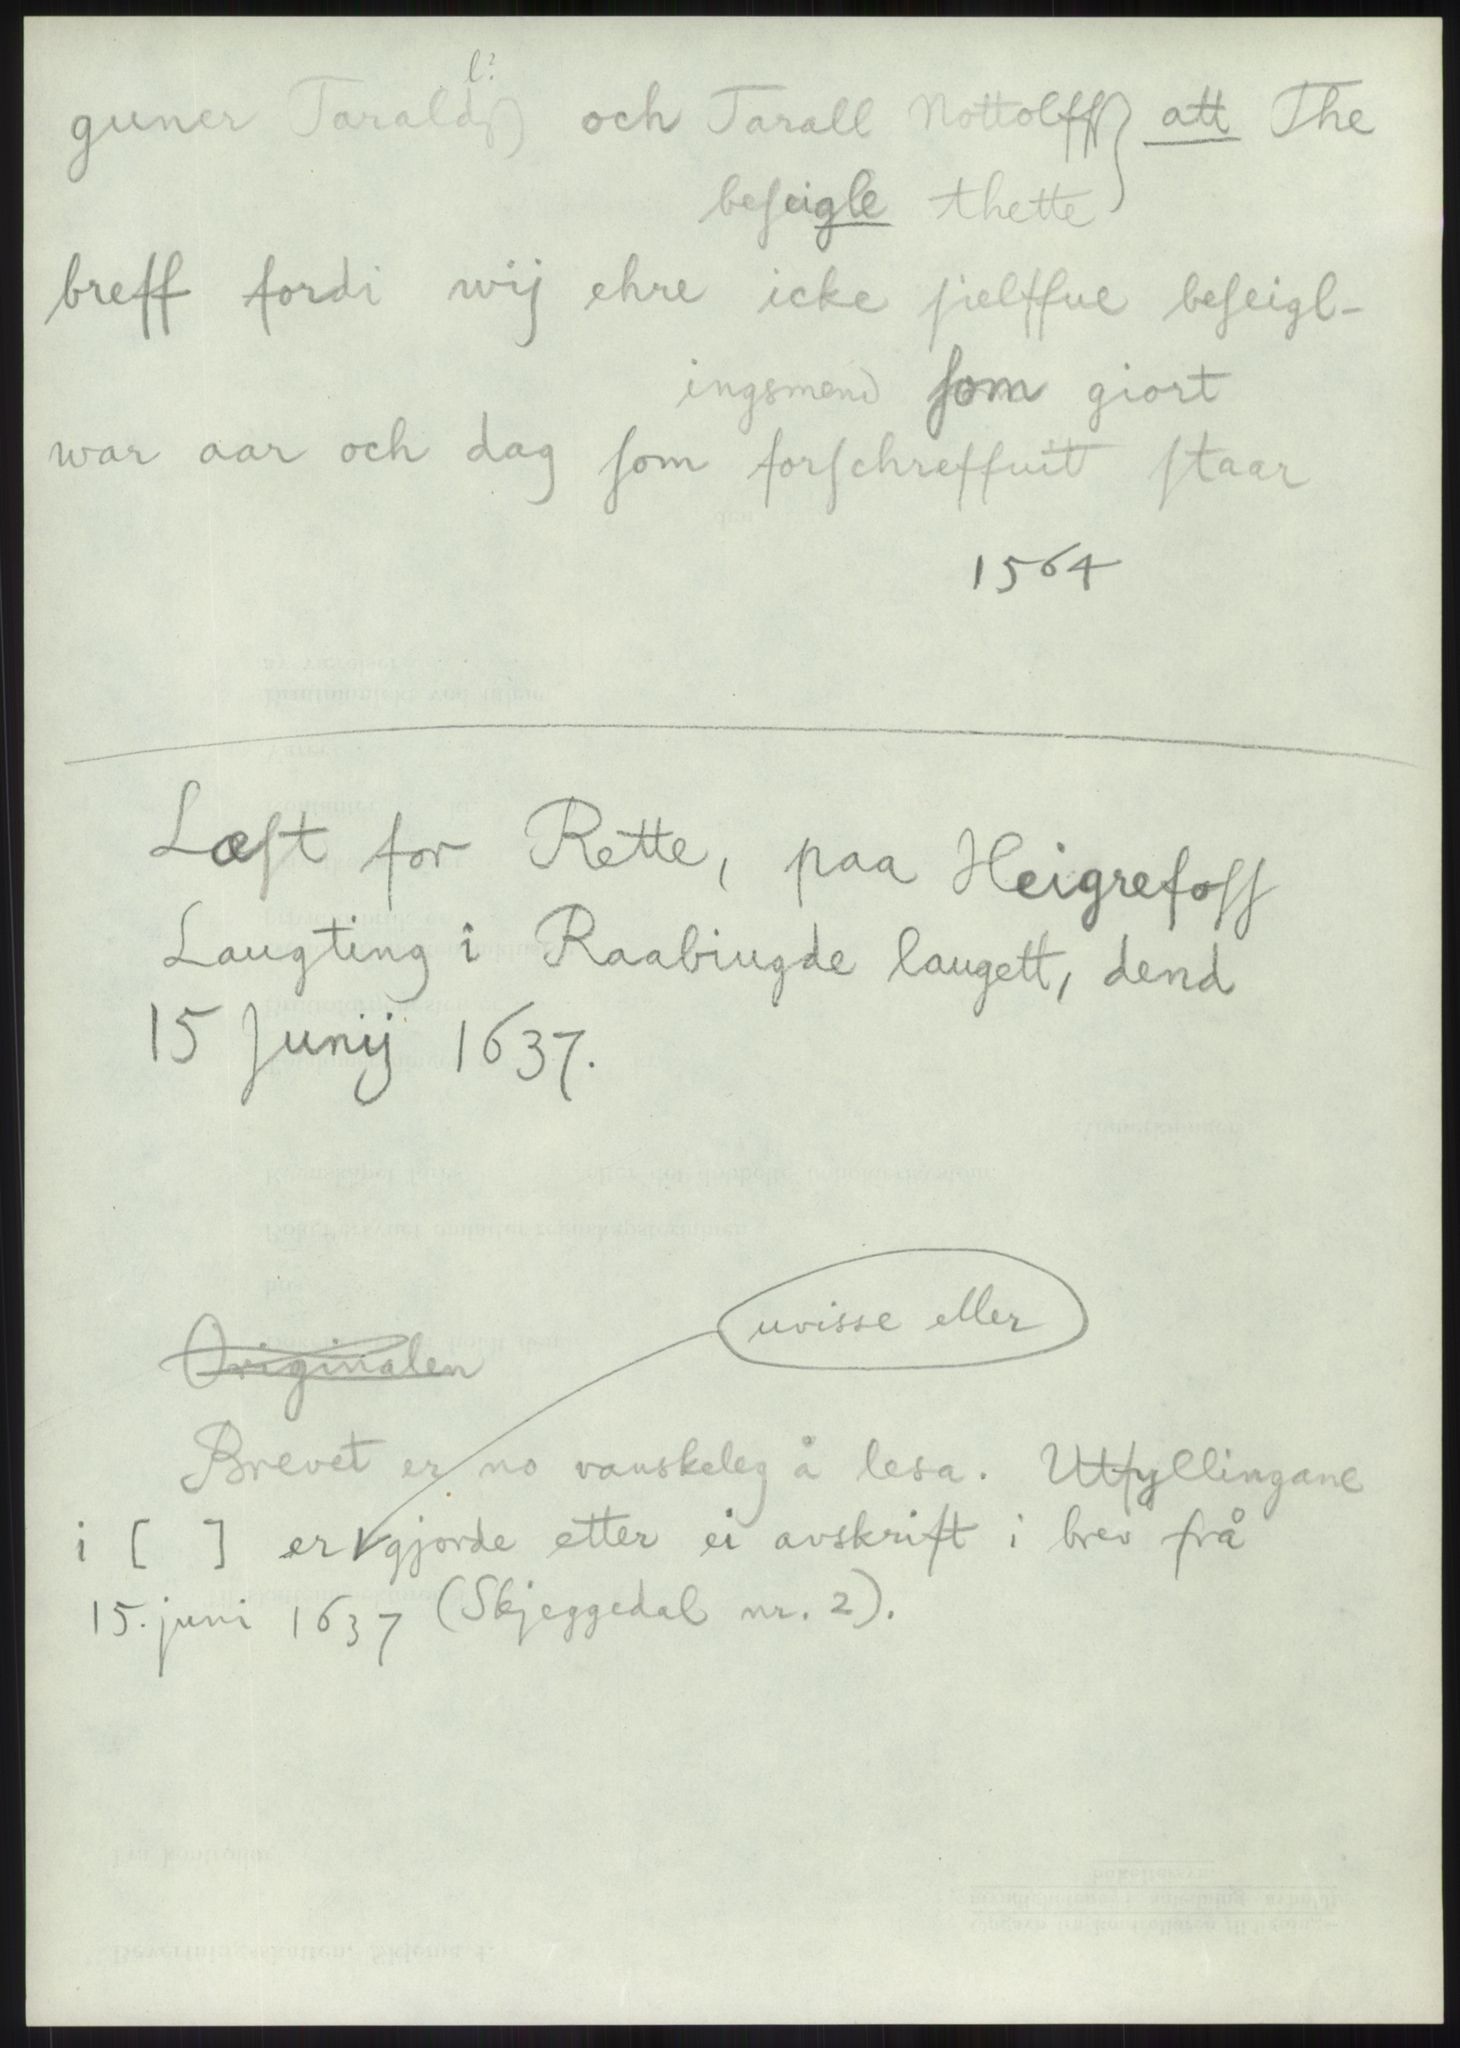 l?
guner Taralds) och Tarall Nottolffs} att The
beseigle thette
breff fordi wij ehre icke sielffue beseigl-
ingsmend som giort
war aar och dag som forschreffuit staar
1564
Læst for Rette, paa Heigrefoss
Laugting i Raabiugde laugett, dend
15 Junij 1637.
uvisse eller
Originalen
Brevet er no vanskeleg å lesa. Utfyllingane
i [ ] er gjorde etter ei avskrift i brev frå
15. juni 1637 (Skjeggedal nr. 2).